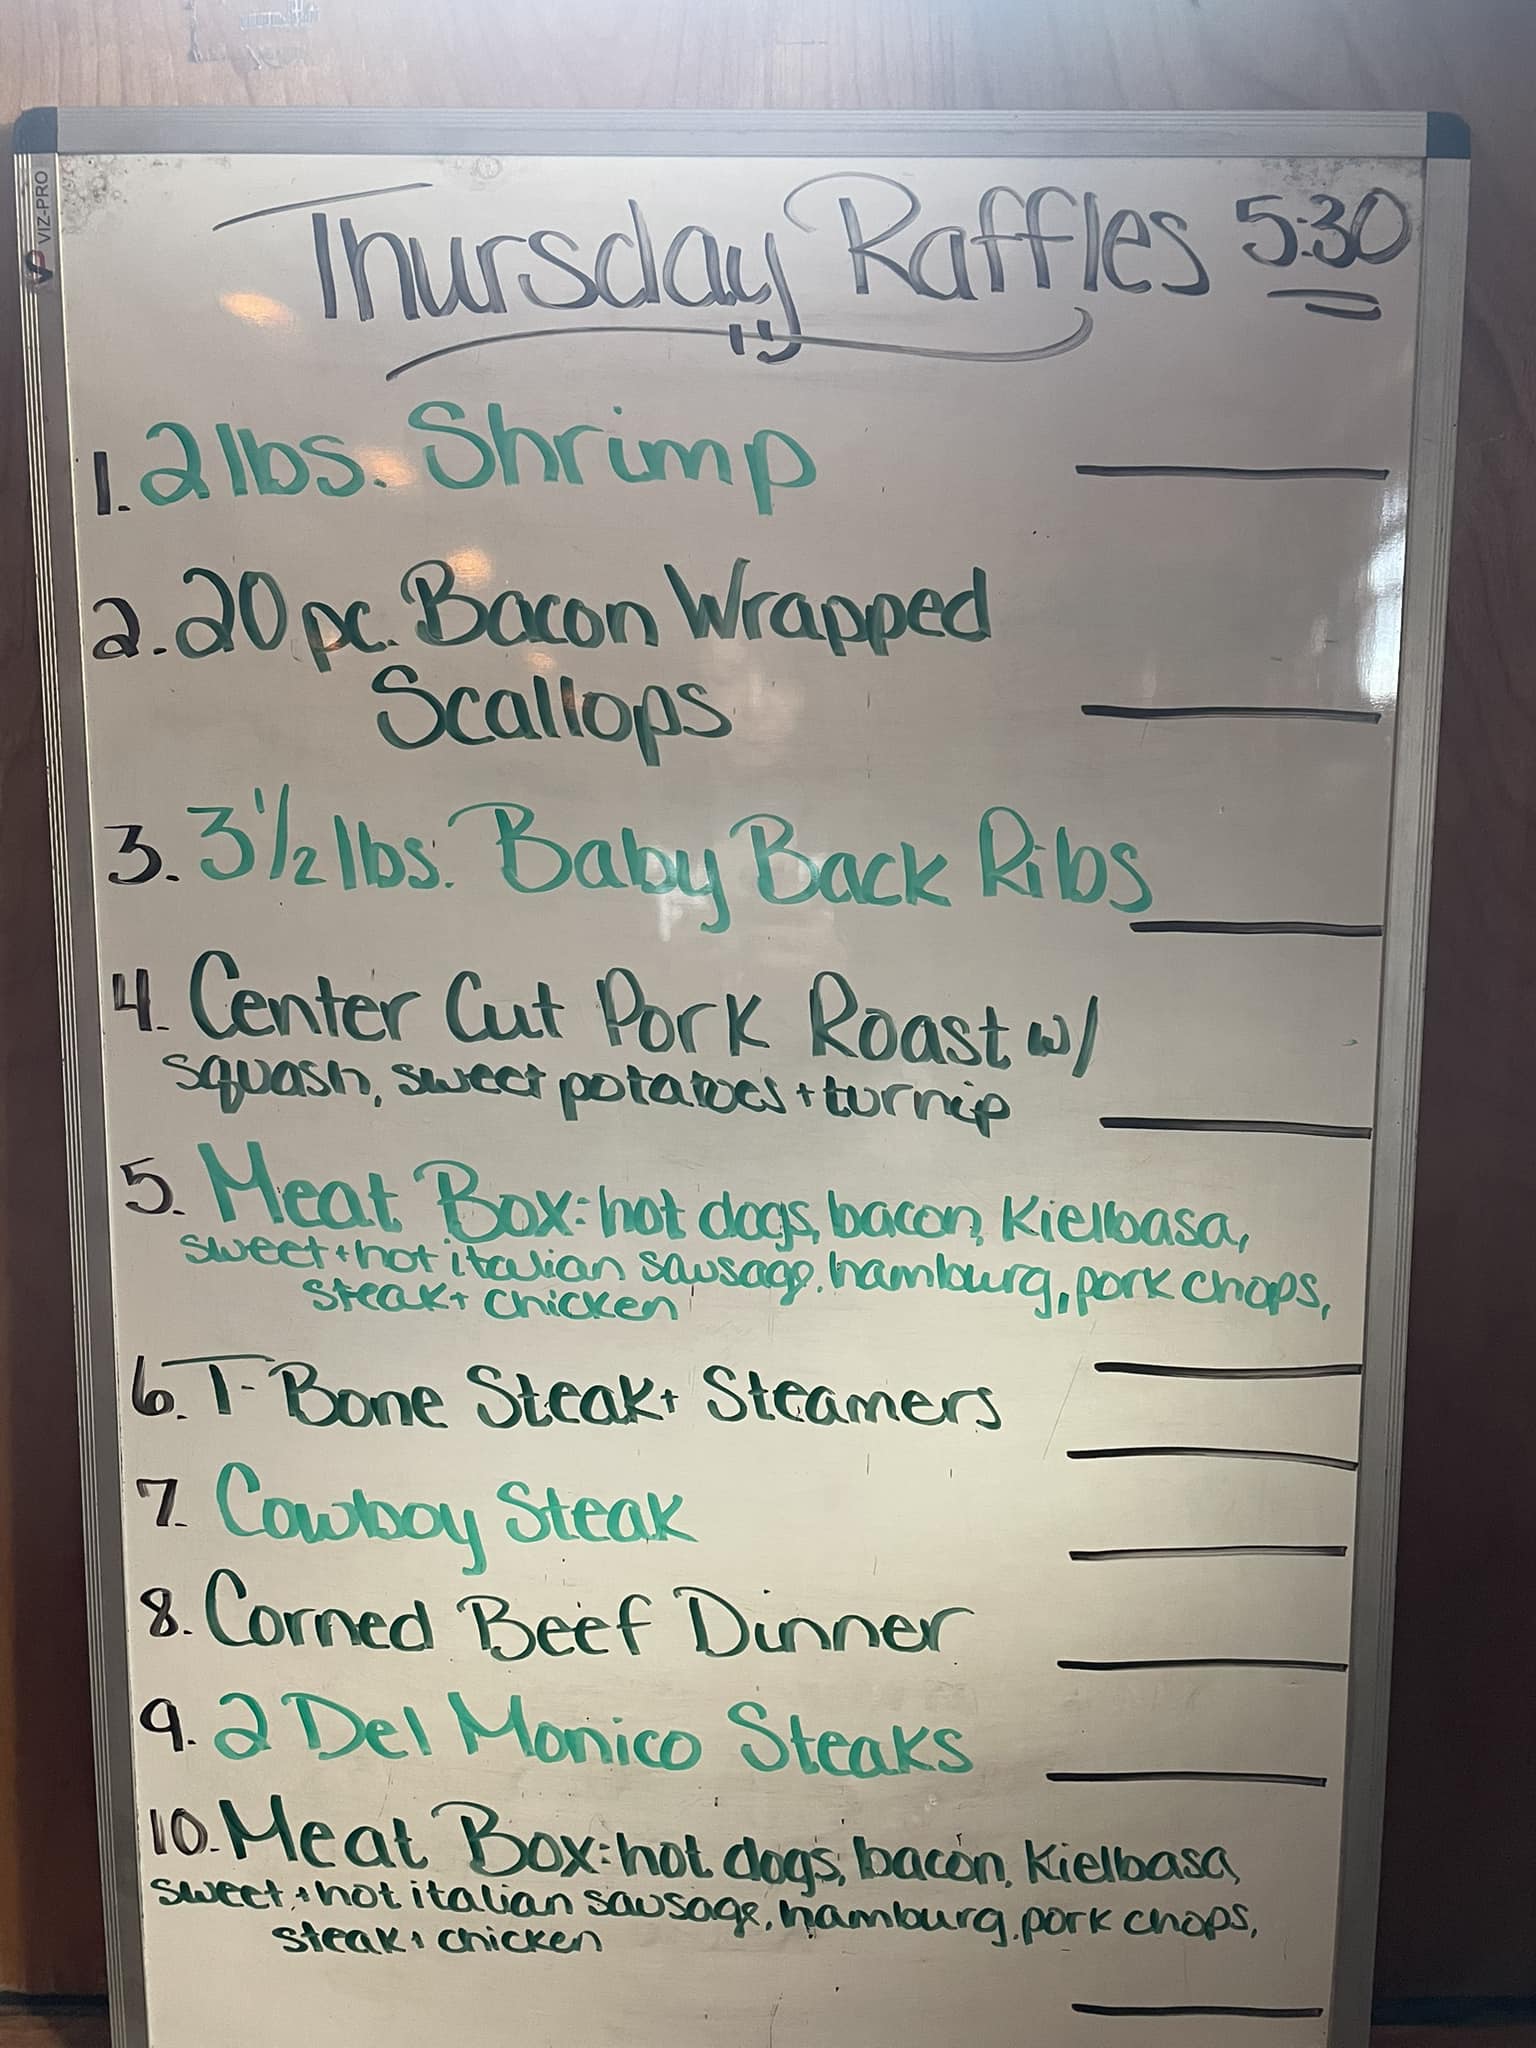 VIZ-PRO
Thursday Raffles 5:30
1. 2 lbs. Shrimp
2. 20 pc. Bacon Wrapped
Scallops
3. 3 1/2 lbs. Baby Back Ribs
4. Center Cut Pork Roast w/
squash, sweet potatoes + turnip
5. Meat Box: hot dogs, bacon, Kielbasa,
sweet + hot italian sausage, hamburg, pork chops,
steak + chicken
6. T-Bone Steak + Steamers
7. Cowboy Steak
8. Corned Beef Dinner
9. 2 Del Monico Steaks
10. Meat Box: hot dogs, bacon, Kielbasa,
sweet + hot italian sausage, hamburg, pork chops,
steak + chicken